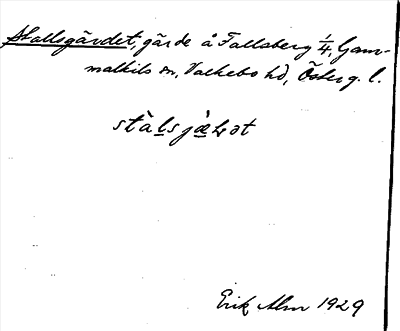 Stallsgärdet, gärde å Fallsberg 1/4, Gam-
malkils sn, Valkebo hd, Österg. l.
stàlsjæ̀ḷət
Erik Alm 1929